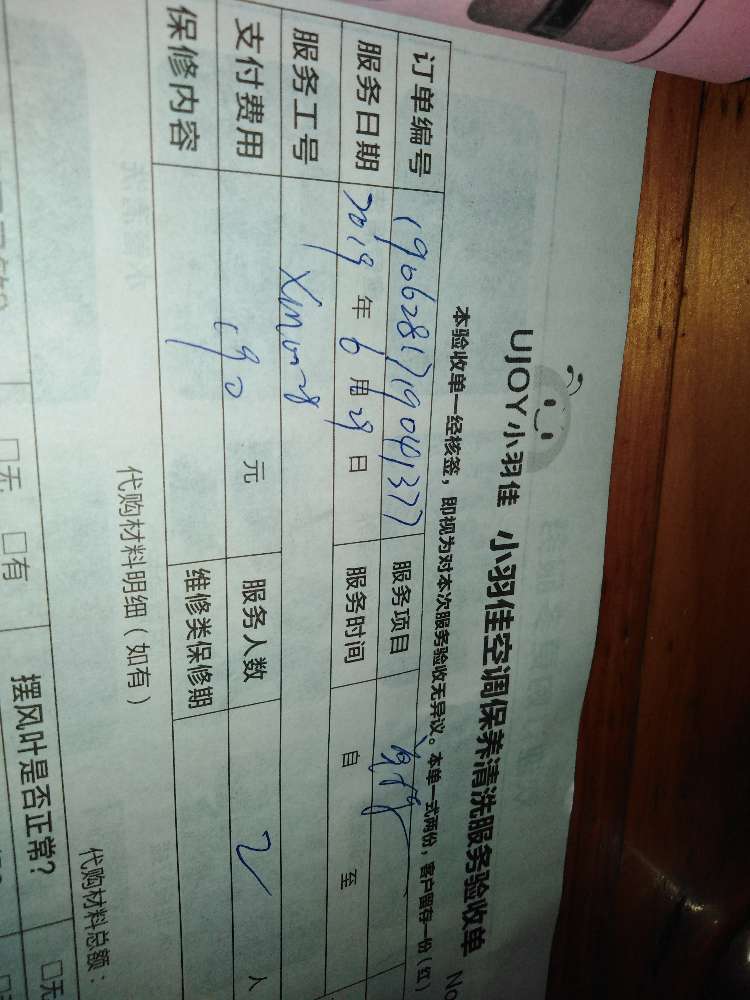 UJOY小羽佳 小羽佳空调保养清洗服务验收单 No
本验收单一经核签，即视为对本次服务验收无异议。本单一式两份，客户留存一份（红）
订单编号 19062817190441377 服务项目
服务日期 2019 年 6 月 29 日 服务时间 自 至
服务工号
支付费用 190 元 服务人数 2 人
保修内容 维修类保修期
代购材料明细（如有） 代购材料总额：
□无 □有 摆风叶是否正常？ □无